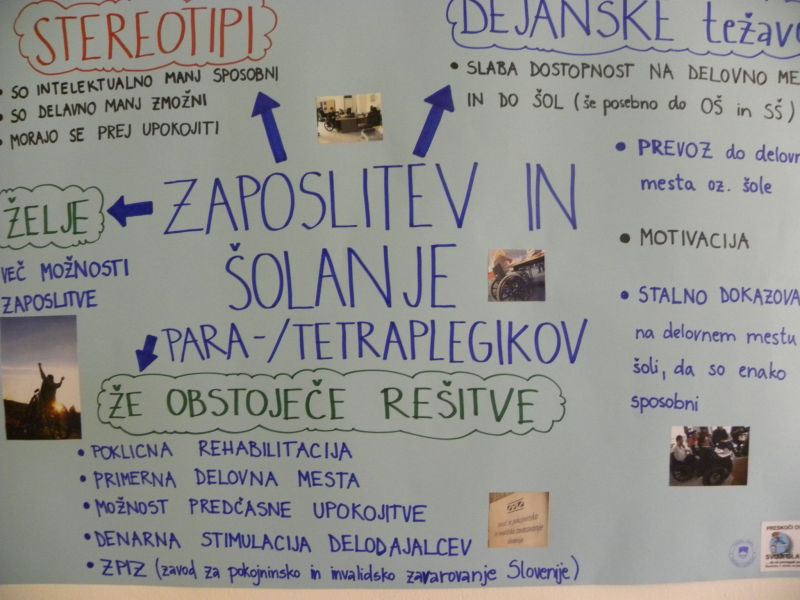 STEREOTIPI
• SO INTELEKTUALNO MANJ SPOSOBNI
• SO DELAVNO MANJ ZMOŽNI
• MORAJO SE PREJ UPOKOJITI
DEJANSKE težave
• SLABA DOSTOPNOST NA DELOVNO ME
IN DO ŠOL (še posebno do OŠ in SŠ)
• PREVOZ do delovn
mesta oz. šole
• MOTIVACIJA
• STALNO DOKAZOVA
na delovnem mestu
šoli, da so enako
sposobni
ŽELJE
VEČ MOŽNOSTI
ZAPOSLITVE
ZAPOSLITEV IN
ŠOLANJE
PARA-/TETRAPLEGIKOV
ŽE OBSTOJEČE REŠITVE
• POKLICNA REHABILITACIJA
• PRIMERNA DELOVNA MESTA
• MOŽNOST PREDČASNE UPOKOJITVE
• DENARNA STIMULACIJA DELODAJALCEV
• ZPIZ (zavod za pokojninsko in invalidsko zavarovanje Slovenije)
ZPIZ
PRESKOČI